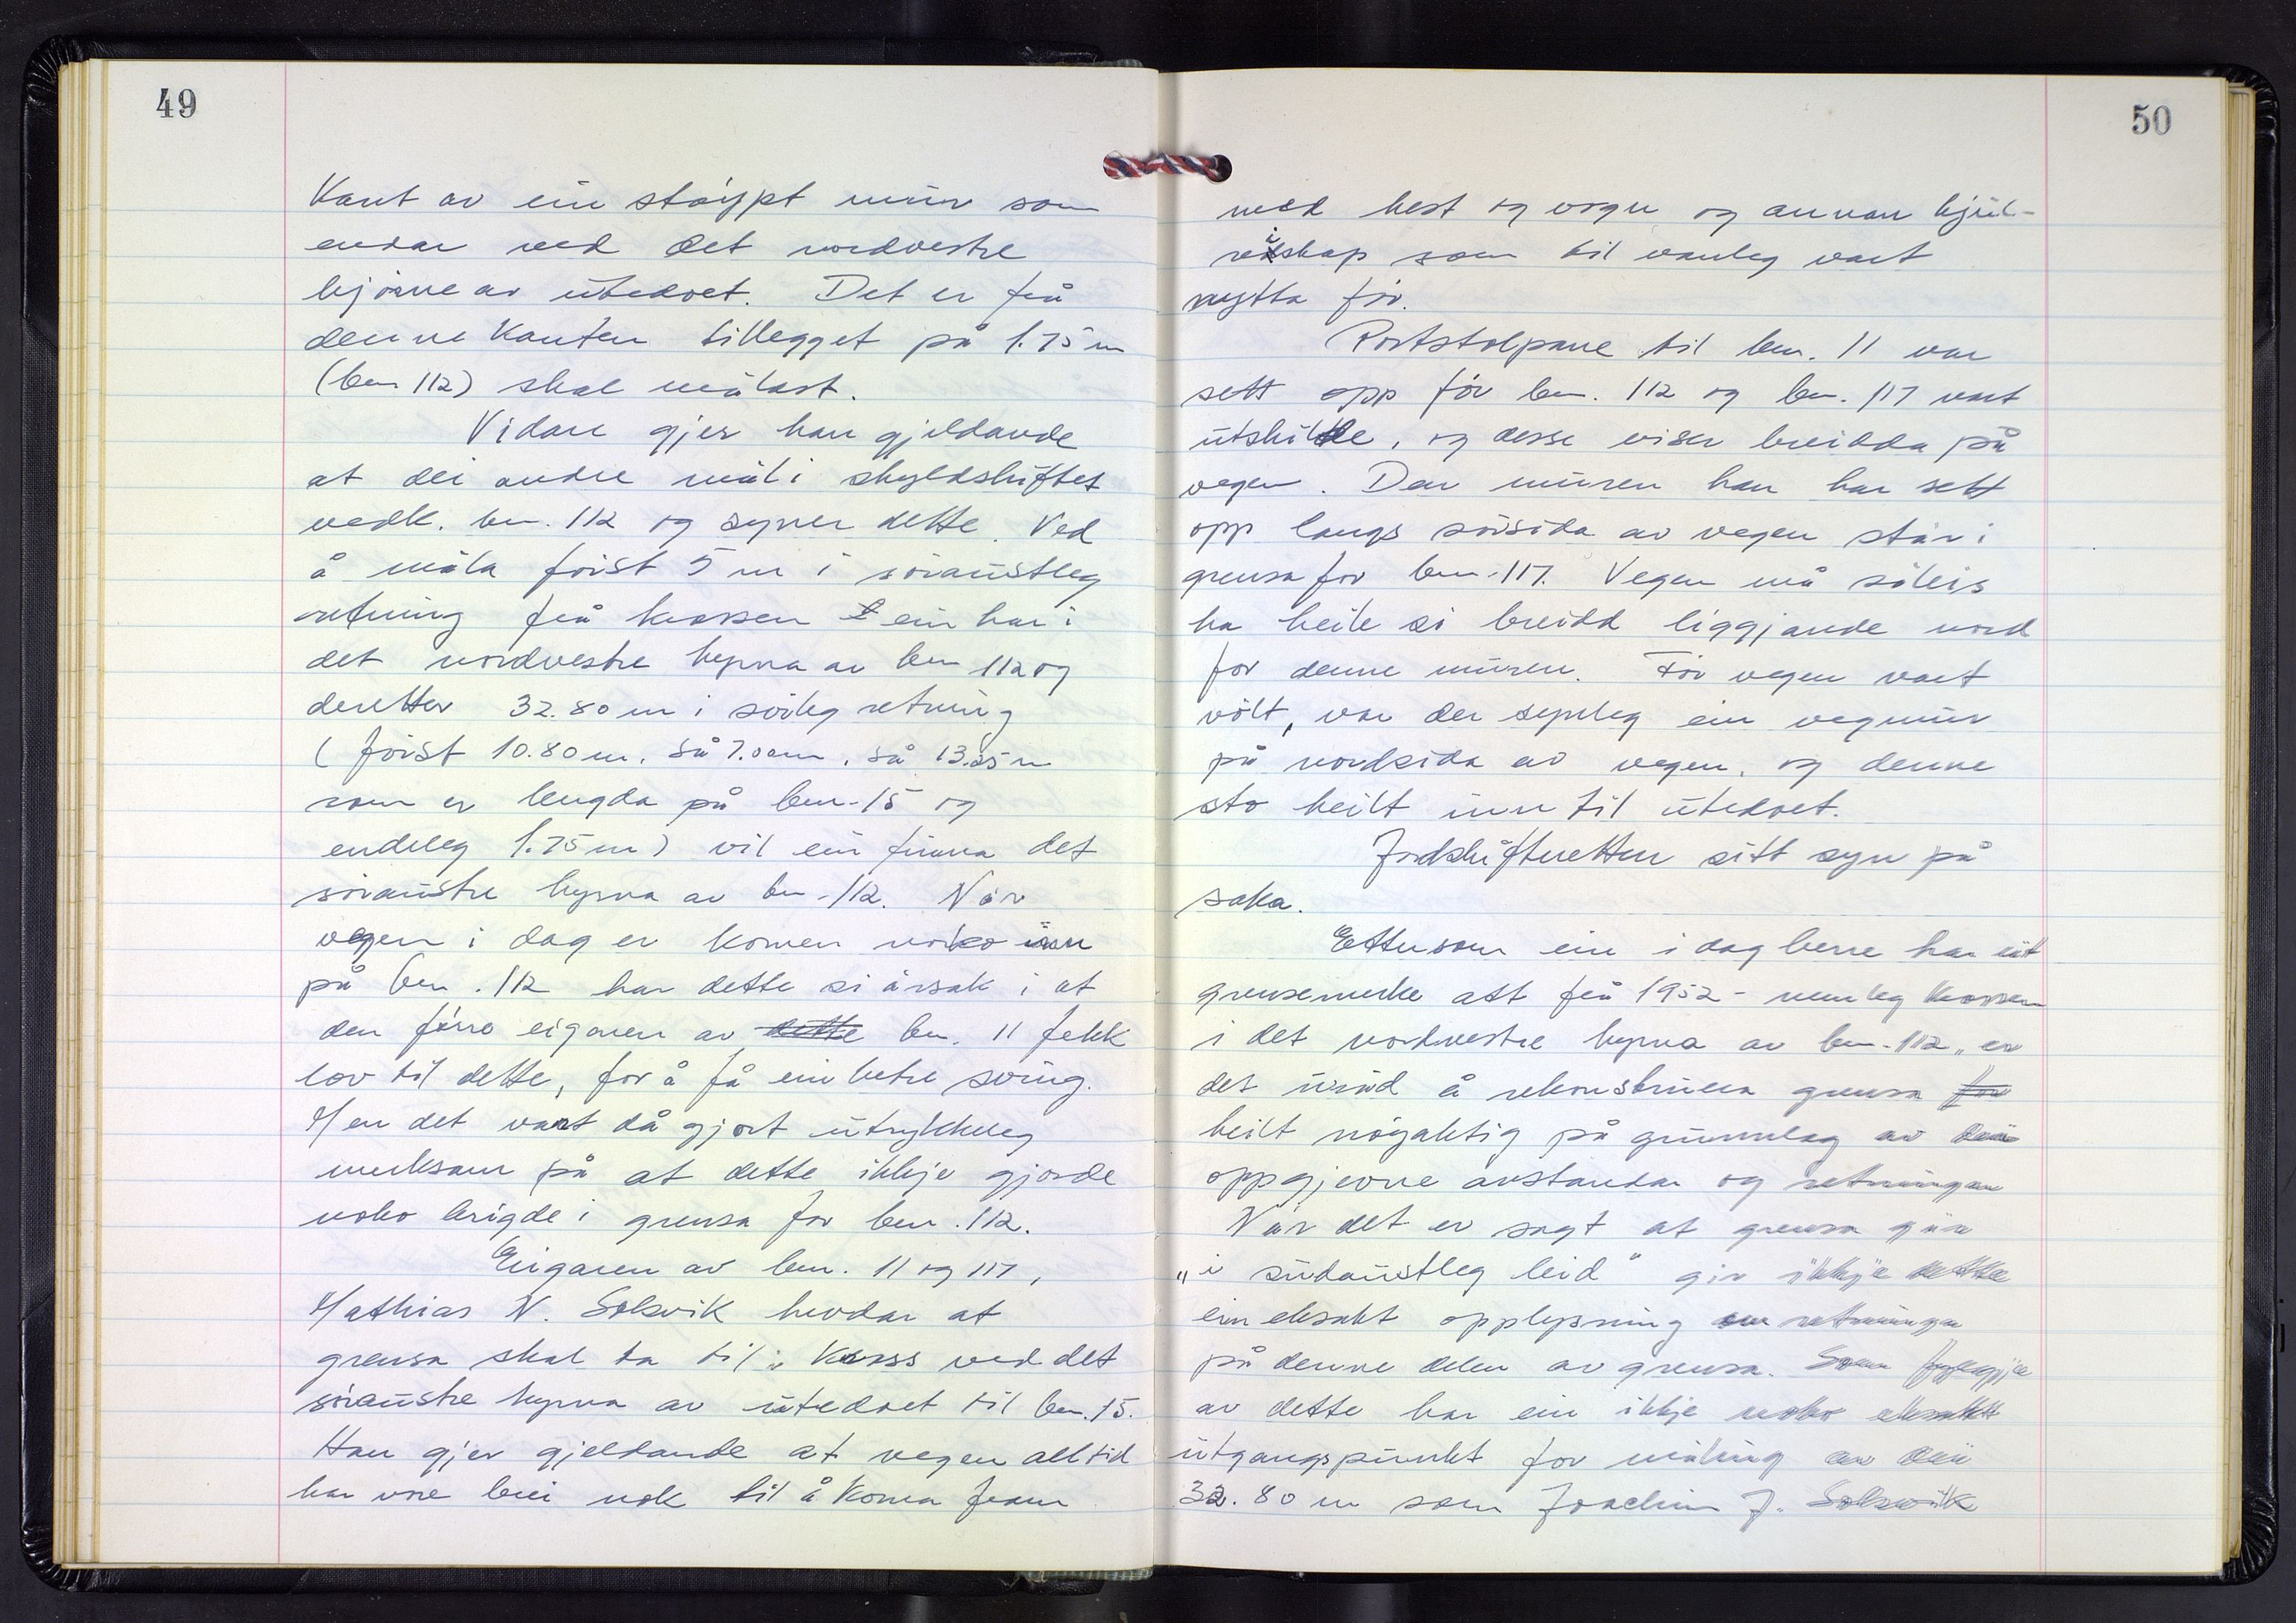 49
Kant av ein støypt mur som
endar ved det nordvestre
hjørne av utedoet. Det er frå
denne kanten tillegget på 1.75 m
(bnr 112) skal målast.
Vidare gjer han gjeldande
at dei andre mål i skyldskiftet
vedk. bnr. 112 og syner dette. Ved
å måla først 5 m i søraustleg
retning frå krossen ein har i
det nordvestre hyrna av bnr 112 og
deretter 32.80 m i sørleg retning
(først 10.80 m, så 7.00 m, så 13.25 m
som er lengda på bnr. 15 og
endeleg 1.75 m) vil ein finna det
søraustre hyrna av bnr. 112. Når
vegen i dag er komen noko inn
på bnr. 112 har dette si årsak i at
den førre eigaren av dette bnr. 11 fekk
lov til dette, for å få ein betre sving.
Men det vart då gjort uttrykkeleg
merksam på at dette ikkje gjorde
noko brigde i grensa for bnr. 112.
Eigaren av bnr. 11 og 117,
Mathias N. Solsvik hevdar at
grensa skal ta til i kross ved det
søraustre hyrna av utedoet til bnr. 15.
Han gjer gjeldande at vegen alltid
har vore brei nok til å koma fram
50
med hest og vogn og annan hjul-
reiskap som til vanleg vart
nytta før.
Portstolpane til bnr. 11 var
sett opp før bnr. 112 og bnr. 117 vart
utskilde, og desse viser breidda på
vegen. Den muren han har sett
opp langs sørsida av vegen står i
grensa for bnr. 117. Vegen må såleis
ha heile si breidd liggjande nord
for denne muren. Før vegen vart
vølt, var der synleg ein vegmur
på nordsida av vegen, og denne
sto heilt inn til utedoet.
Jordskifteretten sitt syn på
saka.
Ettersom ein i dag berre har eit
grensemerke att frå 1952 - nemleg krossen
i det nordvestre hyrna av bnr. 112, er
det uråd å rekonstruera grensa for
heilt nøyaktig på grunnlag av dei
oppgjevne avstandar og retningar
Når det er sagt at grensa går
"i sudaustleg leid" gir ikkje dette
ein eksakt opplysning om retningen
på denne delen av grensa. Som fylgje
av dette har ein ikkje noko eksakt
utgangspunkt for måling av dei
32.80 m som Joachim J. Solsvik